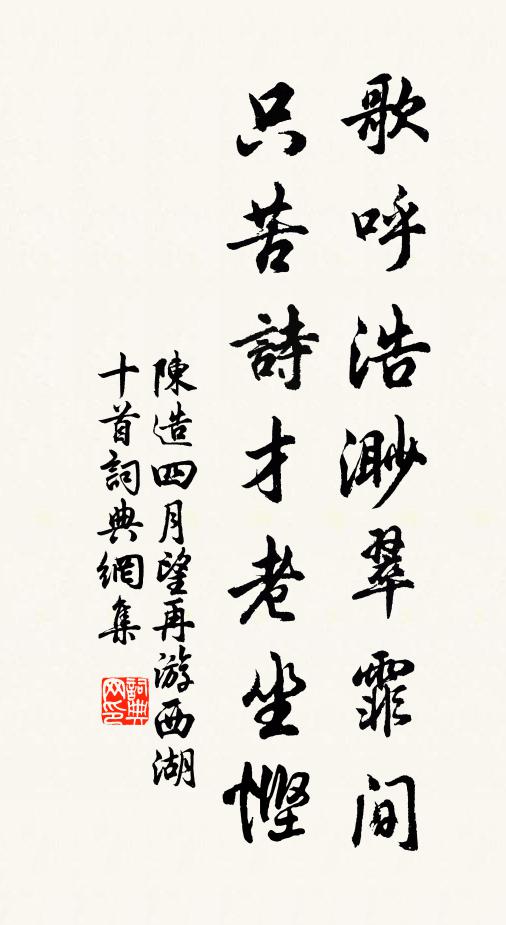 歌呼浩渺翠霏间
只苦詩才老坐慳
陳造四月望再游西湖
十首詞典網集
詞典
网印